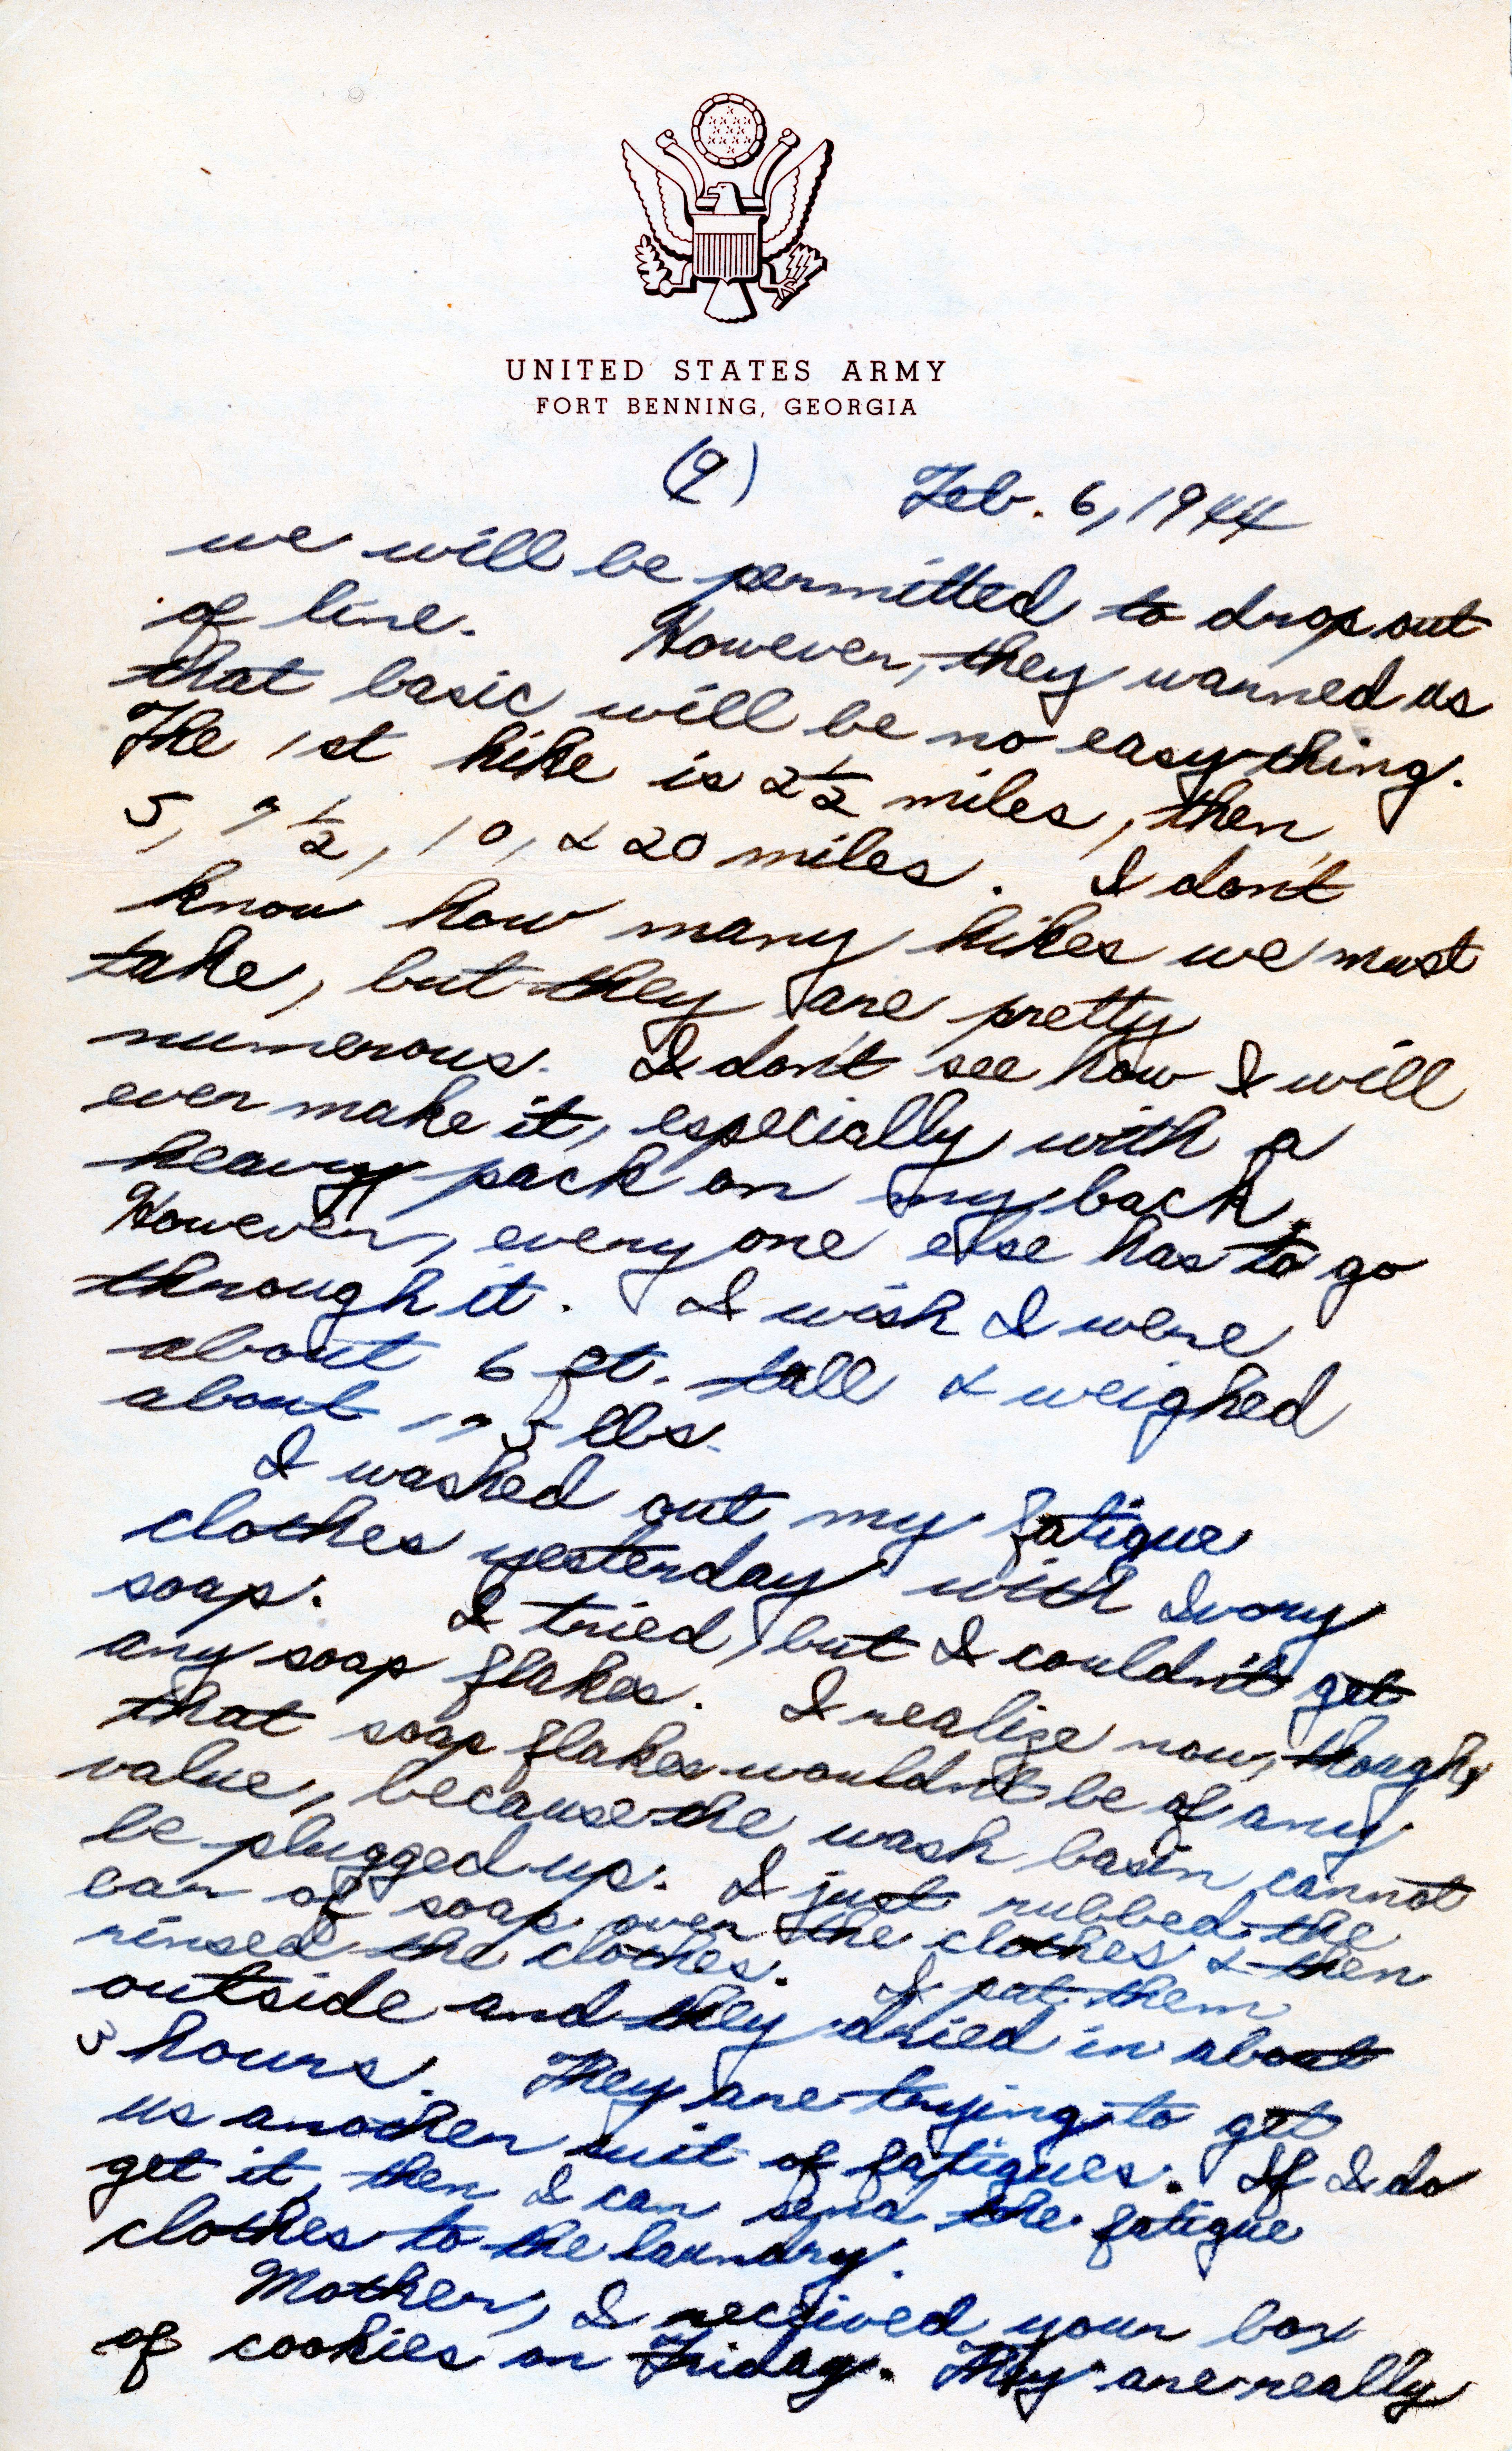 UNITED STATES ARMY
FORT BENNING, GEORGIA
(9) Feb. 6, 1944
we will be permitted to drop out
of line. However, they warned us
that basic will be no easy thing.
The 1st hike is 2 1/2 miles, then,
5, 7 1/2, 10, & 20 miles. I don't
know how many hikes we must
take, but they are pretty
numerous. I don't see how I will
ever make it, especially with a
heavy pack on my back.
However, every one else has to go
through it. I wish I were
about 6 ft. tall & weighed
about 175 lbs.
I washed out my fatigue
clothes yesterday with Ivory
soap. I tried, but I couldn't get
any soap flakes. I realize now, though,
that soap flakes wouldn't be of any
value, because the wash basin cannot
be plugged up. I just rubbed the
car of soap over the clothes & then
rinsed the clothes. I put them
outside and they dried in about
3 hours. They are trying to get
us another suit of fatigues. If I do
get it, then I can send the fatigue
clothes to the laundry.
Mother, I received your box
of cookies on Friday. They are really